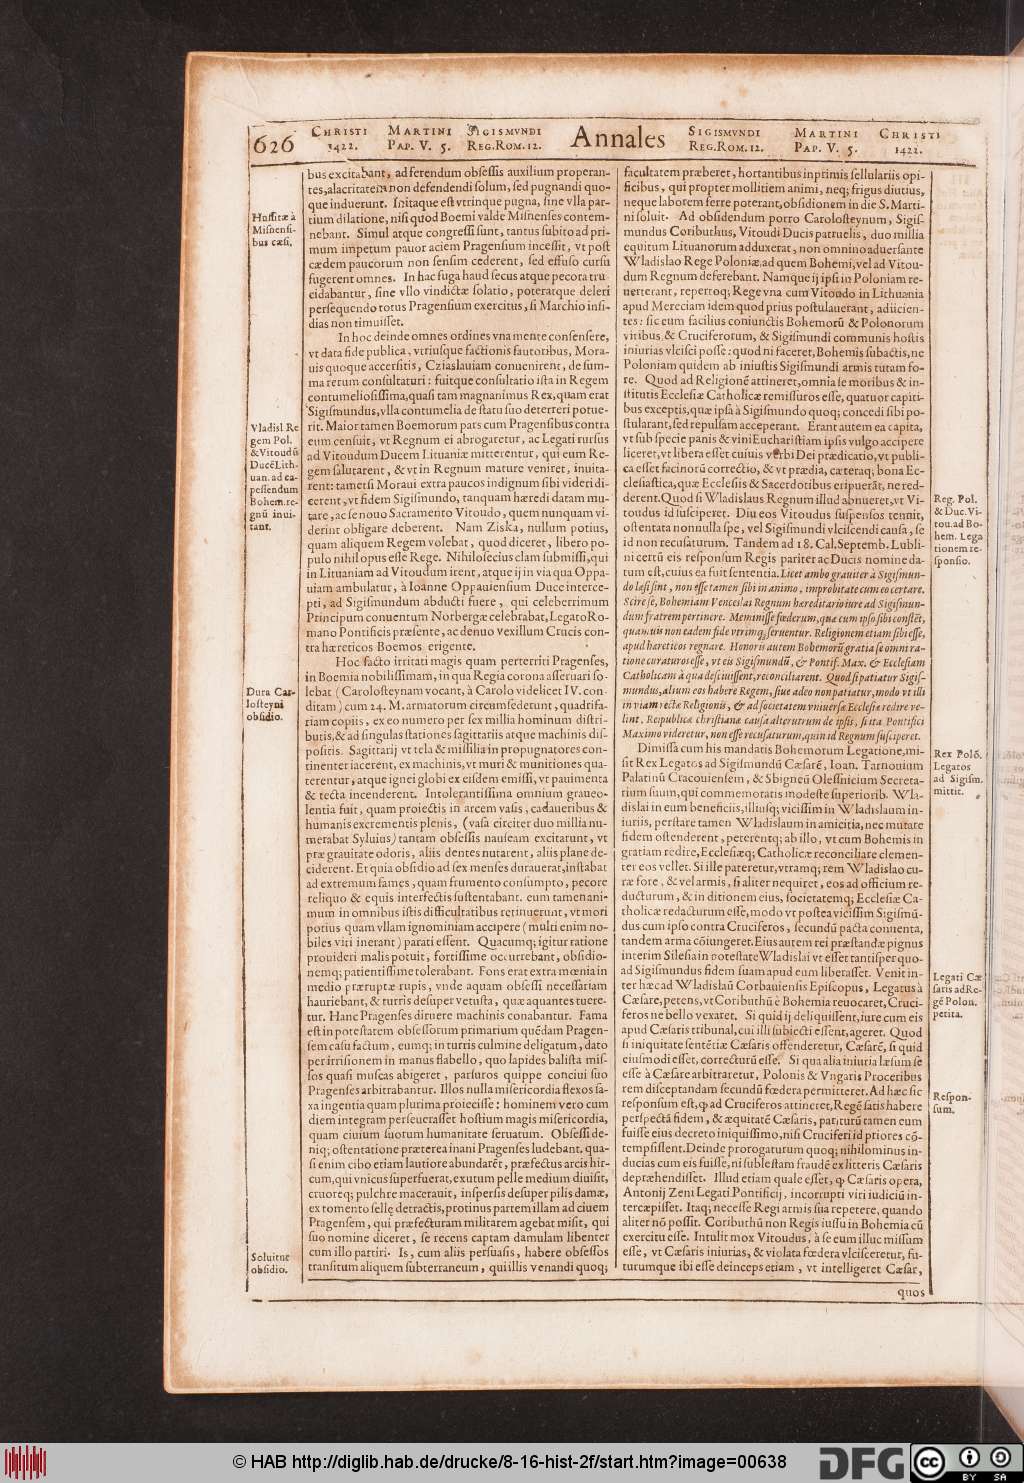 626
CHRISTI MARTINI SIGISMVNDI Annales SIGISMVNDI MARTINI CHRISTI
1422. PAP. V. 5. REG. ROM. 12. REG. ROM. 12. PAP. V. 5. 1422.
Hussitæ à
Misnensi-
bus cæsi.
Vladisl Re
gem Pol.
& Vitoudũ
Ducẽ Lith-
uan. ad ca-
pessendum
Bohem. re-
gnũ inui-
tant.
Dura Car-
losteyni
obsidio.
Soluitur
obsidio.
bus excitabant, ad ferendum obsessis auxilium properan-
tes, alacritatem non defendendi solum, sed pugnandi quo-
que induerunt. Initaque est vtrinque pugna, sine vlla par-
tium dilatione, nisi quod Boemi valde Misnenses contem-
nebant. Simul atque congressi sunt, tantus subito ad pri-
mum impetum pauor aciem Pragensium incessit, vt post
cædem paucorum non sensim cederent, sed effuso cursu
fugerent omnes. In hac fuga haud secus atque pecora tru
cidabantur, sine vllo vindictæ solatio, poteratque deleri
persequendo totus Pragensium exercitus, si Marchio insi-
dias non timuisset.
In hoc deinde omnes ordines vna mente consensere,
vt data fide publica, vtriusque factionis fautoribus, Mora-
uis quoque accersitis, Cziaslauiam conuenirent, de sum-
ma rerum consultaturi: fuitque consultatio ista in Regem
contumeliosissima, quasi tam magnanimus Rex, quam erat
Sigismundus, vlla contumelia de statu suo deterreri potue-
rit. Maior tamen Boemorum pars cum Pragensibus contra
eum censuit, vt Regnum ei abrogaretur, ac Legati rursus
ad Vitoudum Ducem Lituaniæ mitterentur, qui eum Re-
gem salutarent, & vt in Regnum mature veniret, inuita-
rent: tametsi Moraui extra paucos indignum sibi videri di-
cerent, vt fidem Sigismundo, tanquam hæredi datam mu-
tare, ac se nouo Sacramento Vitoudo, quem nunquam vi-
derint obligare deberent. Nam Ziska, nullum potius,
quam aliquem Regem volebat, quod diceret, libero po-
pulo nihil opus esse Rege. Nihilosecius clam submissi, qui
in Lituaniam ad Vitoudum irent, atque ij in via qua Oppa-
uiam ambulatur, à Ioanne Oppauiensium Duce interce-
pti, ad Sigismundum abducti fuere, qui celeberrimum
Principum conuentum Norbergæ celebrabat, Legato Ro-
mano Pontificis præsente, ac denuo vexillum Crucis con-
tra hæreticos Boemos erigente.
Hoc facto irritati magis quam perterriti Pragenses,
in Boemia nobilissimam, in qua Regia corona asseruari so-
lebat (Carolosteynam vocant, à Carolo videlicet IV. con-
ditam) cum 24. M. armatorum circumsederunt, quadrifa-
riam copiis, ex eo numero per sex millia hominum distri-
butis, & ad singulas stationes sagittariis atque machinis dis-
positis. Sagittarij vt tela & missilia in propugnatores con-
tinenter iacerent, ex machinis, vt muri & munitiones qua-
terentur, atque ignei globi ex eisdem emissi, vt pauimenta
& tecta incenderent. Intolerantissima omnium graueo-
lentia fuit, quam proiectis in arcem vasis, cadaueribus &
humanis excrementis plenis, (vasa circiter duo millia nu-
merabat Syluius) tantam obsessis nauseam excitarunt, vt
præ grauitate odoris, aliis dentes nutarent, aliis plane de-
ciderent. Et quia obsidio ad sex menses durauerat, instabat
ad extremum fames, quam frumento consumpto, pecore
reliquo & equis interfectis sustentabant. eum tamen ani-
mum in omnibus istis difficultatibus retinuerunt, vt mori
potius quam vllam ignominiam accipere (multi enim no-
biles viri inerant) parati essent. Quacumq; igitur ratione
prouideri malis potuit, fortissime occurrebant, obsidio-
nemq; patientissime tolerabant. Fons erat extra mœnia in
medio præruptæ rupis, vnde aquam obsessi necessariam
hauriebant, & turris desuper vetusta, quæ aquantes tuere-
tur. Hanc Pragenses diruere machinis conabantur. Fama
est in potestatem obsessorum primarium quẽdam Pragen-
sem casu factum, eumq; in turris culmine deligatum, dato
per irrisionem in manus flabello, quo lapides balista mis-
sos quasi muscas abigeret, parsuros quippe conciui suo
Pragenses arbitrabantur. Illos nulla misericordia flexos sa-
xa ingentia quam plurima proiecisse: hominem vero cum
diem integram perseuerasset hostium magis misericordia,
quam ciuium suorum humanitate seruatum. Obsessi de-
niq; ostentatione præterea inani Pragenses ludebant. qua-
si enim cibo etiam lautiore abundarẽt, præfectus arcis hir-
cum, qui vnicus superfuerat, exutum pelle medium diuisit,
cruoreq; pulchre macerauit, inspersis desuper pilis damæ,
ex tomento sellę detractis, protinus partem illam ad ciuem
Pragensem, qui præfecturam militarem agebat misit, qui
suo nomine diceret, se recens captam damulam libenter
cum illo partiri. Is, cum aliis persuasis, habere obsessos
transitum aliquem subterraneum, qui illis venandi quoq;
facultatem præberet, hortantibus inprimis sellulariis opi-
ficibus, qui propter mollitiem animi, neq; frigus diutius,
neque laborem ferre poterant, obsidionem in die S. Marti-
ni soluit. Ad obsidendum porro Carolosteynum, Sigis-
mundus Coributhus, Vitoudi Ducis patruelis, duo millia
equitum Lituanorum adduxerat, non omnino aduersante
Wladislao Rege Poloniæ, ad quem Bohemi, vel ad Vitou-
dum Regnum deferebant. Namque ij ipsi in Poloniam re-
uerterant, repertoq; Rege vna cum Vitoudo in Lithuania
apud Mereciam idem quod prius postulauerant, adiicien-
tes: sic eum facilius coniunctis Bohemorũ & Polonorum
viribus, & Cruciferorum, & Sigismundi communis hostis
iniurias vlcisci posse: quod ni faceret, Bohemis subactis, ne
Poloniam quidem ab iniustis Sigismundi armis tutam fo-
re. Quod ad Religionẽ attineret, omnia se moribus & in-
stitutis Ecclesiæ Catholicæ remissuros esse, quatuor capiti-
bus exceptis, quæ ipsa à Sigismundo quoq; concedi sibi po-
stularant, sed repulsam acceperant. Erant autem ea capita,
vt sub specie panis & vini Eucharistiam ipsis vulgo accipere
liceret, vt libera esset cuiuis verbi Dei prædicatio, vt publi-
ca esset facinorũ correctio, & vt prædia, cæteraq; bona Ec-
clesiastica, quæ Ecclesiis & Sacerdotibus eripuerãt, ne red-
derent. Quod si Wladislaus Regnum illud abnueret, vt Vi-
toudus id susciperet. Diu eos Vitoudus suspensos tenuit,
ostentata nonnulla spe, vel Sigismundi vlciscendi causa, se
id non recusaturum. Tandem ad 18. Cal. Septemb. Lubli-
ni certũ eis responsum Regis pariter ac Ducis nomine da-
tum est, cuius ea fuit sententia. Licet ambo grauiter à Sigismun-
do læsi sint, non esse tamen sibi in animo, improbitate cum eo certare.
Scire se, Bohemiam Venceslai Regnum hæreditario iure ad Sigismun-
dum fratrem pertinere. Meminisse fœderum, quæ cum ipso sibi constẽt,
quamuis non eadem fide vtrimq; seruentur. Religionem etiam sibi esse,
apud hæreticos regnare. Honoris autem Bohemorũ gratia se omni ra-
tione curaturos esse, vt eis Sigismundũ, & Pontif. Max. & Ecclesiam
Catholicam à qua desciuissent, reconciliarent. Quod si patiatur Sigis-
mundus, alium eos habere Regem, siue adeo non patiatur, modo vt illi
in viam rectæ Religionis, & ad societatem vniuersæ Ecclesiæ redire ve-
lint, Reipublicæ christianæ causa alterutrum de ipsis, si ita Pontifici
Maximo videretur, non esse recusaturum, quin id Regnum susciperet.
Dimissa cum his mandatis Bohemorum Legatione, mi-
sit Rex Legatos ad Sigismundũ Cæsarẽ, Ioan. Tarnouium
Palatinũ Cracouiensem, & Sbigneũ Olessinicium Secreta-
rium suum, qui commemoratis modeste superiorib. Wla-
dislai in eum beneficiis, illiusq; vicissim in Wladislaum in-
iuriis, perstare tamen Wladislaum in amicitia, nec mutare
fidem ostenderent, peterentq; ab illo, vt cum Bohemis in
gratiam redire, Ecclesiæq; Catholicæ reconciliare clemen-
ter eos vellet. Si ille pateretur, vtramq; rem Wladislao cu-
ræ fore, & vel armis, si aliter nequiret, eos ad officium re-
ducturum, & in ditionem eius, societatemq; Ecclesiæ Ca-
tholicæ redacturum esse, modo vt postea vicissim Sigismũ-
dus cum ipso contra Cruciferos, secundũ pacta conuenta,
tandem arma cõiungeret. Eius autem rei præstandæ pignus
interim Silesia in potestate Wladislai vt esset tantisper quo-
ad Sigismundus fidem suam apud eum liberasset. Venit in-
ter hæc ad Wladislaũ Corbauiensis Episcopus, Legatus à
Cæsare, petens, vt Coributhũ è Bohemia reuocaret, Cruci-
feros ne bello vexaret. Si quid ij deliquissent, iure cum eis
apud Cæsaris tribunal, cui illi subiecti essent, ageret. Quod
si iniquitate sentẽtiæ Cæsaris offenderetur, Cæsarẽ, si quid
eiusmodi esset, correcturũ esse. Si qua alia iniuria læsum se
esse à Cæsare arbitraretur, Polonis & Vngaris Proceribus
rem disceptandam secundũ fœdera permitteret. Ad hæc sic
responsum est, ꝙ ad Cruciferos attineret, Regẽ satis habere
perspectã fidem, & æquitatẽ Cæsaris, patiturũ tamen eum
fuisse eius decreto iniquissimo, nisi Cruciferi id priores cõ-
tempsissent. Deinde prorogaturum quoq; nihilominus in-
ducias cum eis fuisse, ni sublestam fraudẽ ex litteris Cæsaris
depræhendisset. Illud etiam quale esset, ꝙ Cæsaris opera,
Antonij Zeni Legati Pontificij, incorrupti viri iudiciũ in-
tercæpisset. Itaq; necesse Regi armis sua repetere, quando
aliter nõ possit. Coributhũ non Regis iussu in Bohemia cũ
exercitu esse. Intulit mox Vitoudus, à se eum illuc missum
esse, vt Cæsaris iniurias, & violata fœdera vlcisceretur, fu-
turumque ibi esse deinceps etiam, vt intelligeret Cæsar,
quos
Reg. Pol.
& Duc. Vi-
tou. ad Bo-
hem. Lega
tionem re-
sponsio.
Rex Polõ.
Legatos
ad Sigism.
mittit.
Legati Cæ
saris ad Re-
gẽ Polon.
petita.
Respon-
sum.
© HAB http://diglib.hab.de/drucke/8-16-hist-2f/start.htm?image=00638
DFG
cc
BY SA